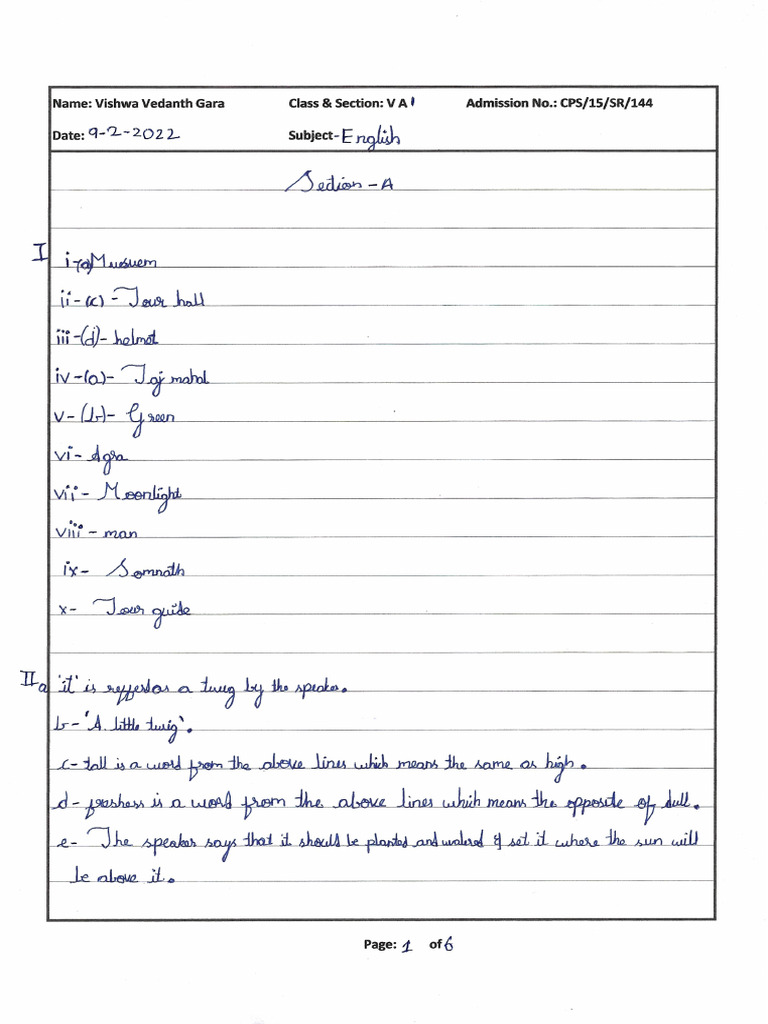 Name: Vishwa Vedanth Gara Class & Section: V A1 Admission No.: CPS/15/SR/144
Date: 9-2-2022 Subject-English
Section-A
I
i-(a) Muesuem
ii-(c)- Tour hall
iii-(d)- helmet
iv-(a)- Taj mahal
v-(b)- Green
vi- Agra
vii- Moonlight
viii-man
ix- Somnath
x- Tour guide
II a 'it' is as a twig by the speaker.
b-'A little twig'.
c- tall is a word from the above lines which means the same as high.
d- freshess is a word from the above lines which means the opposite of dull.
e- The speaker says that it should be planted and watered & set it where the sun will
be above it.
Page: 1 of 6